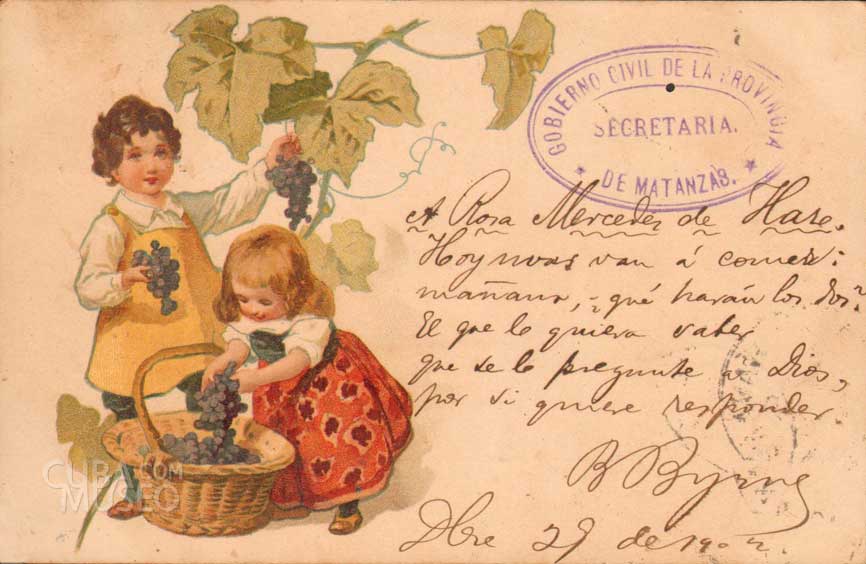 GOBIERNO CIVIL DE LA PROVINCIA
SECRETARIA.
★ DE MATANZAS. ★
A Rosa Mercedes de Haro.
Hoy uvas van á comer:
mañana, ¿qué harán los dos?
El que lo quiera saber
que se lo pregunte á Dios,
por si quiere responder
B Byrne
Dbre 29 de 1902
CUBA .COM
MUSEO